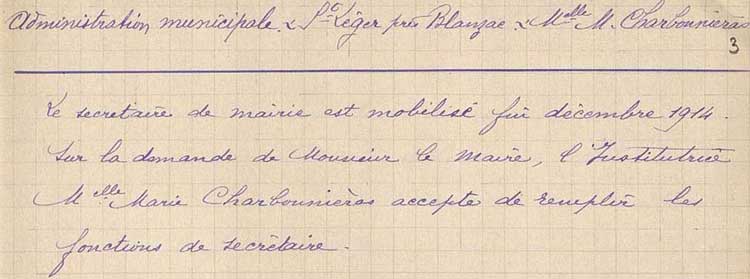 Administration municipale. St Léger près Blanzac. Melle M. Charbonnieras
3
Le secretaire de mairie est mobilisé fin décembre 1914.
Sur la demande de Monsieur le Maire, l'Institutrice
Melle Marie Charbonniéras accepte de remplir les
fonctions de secrétaire.